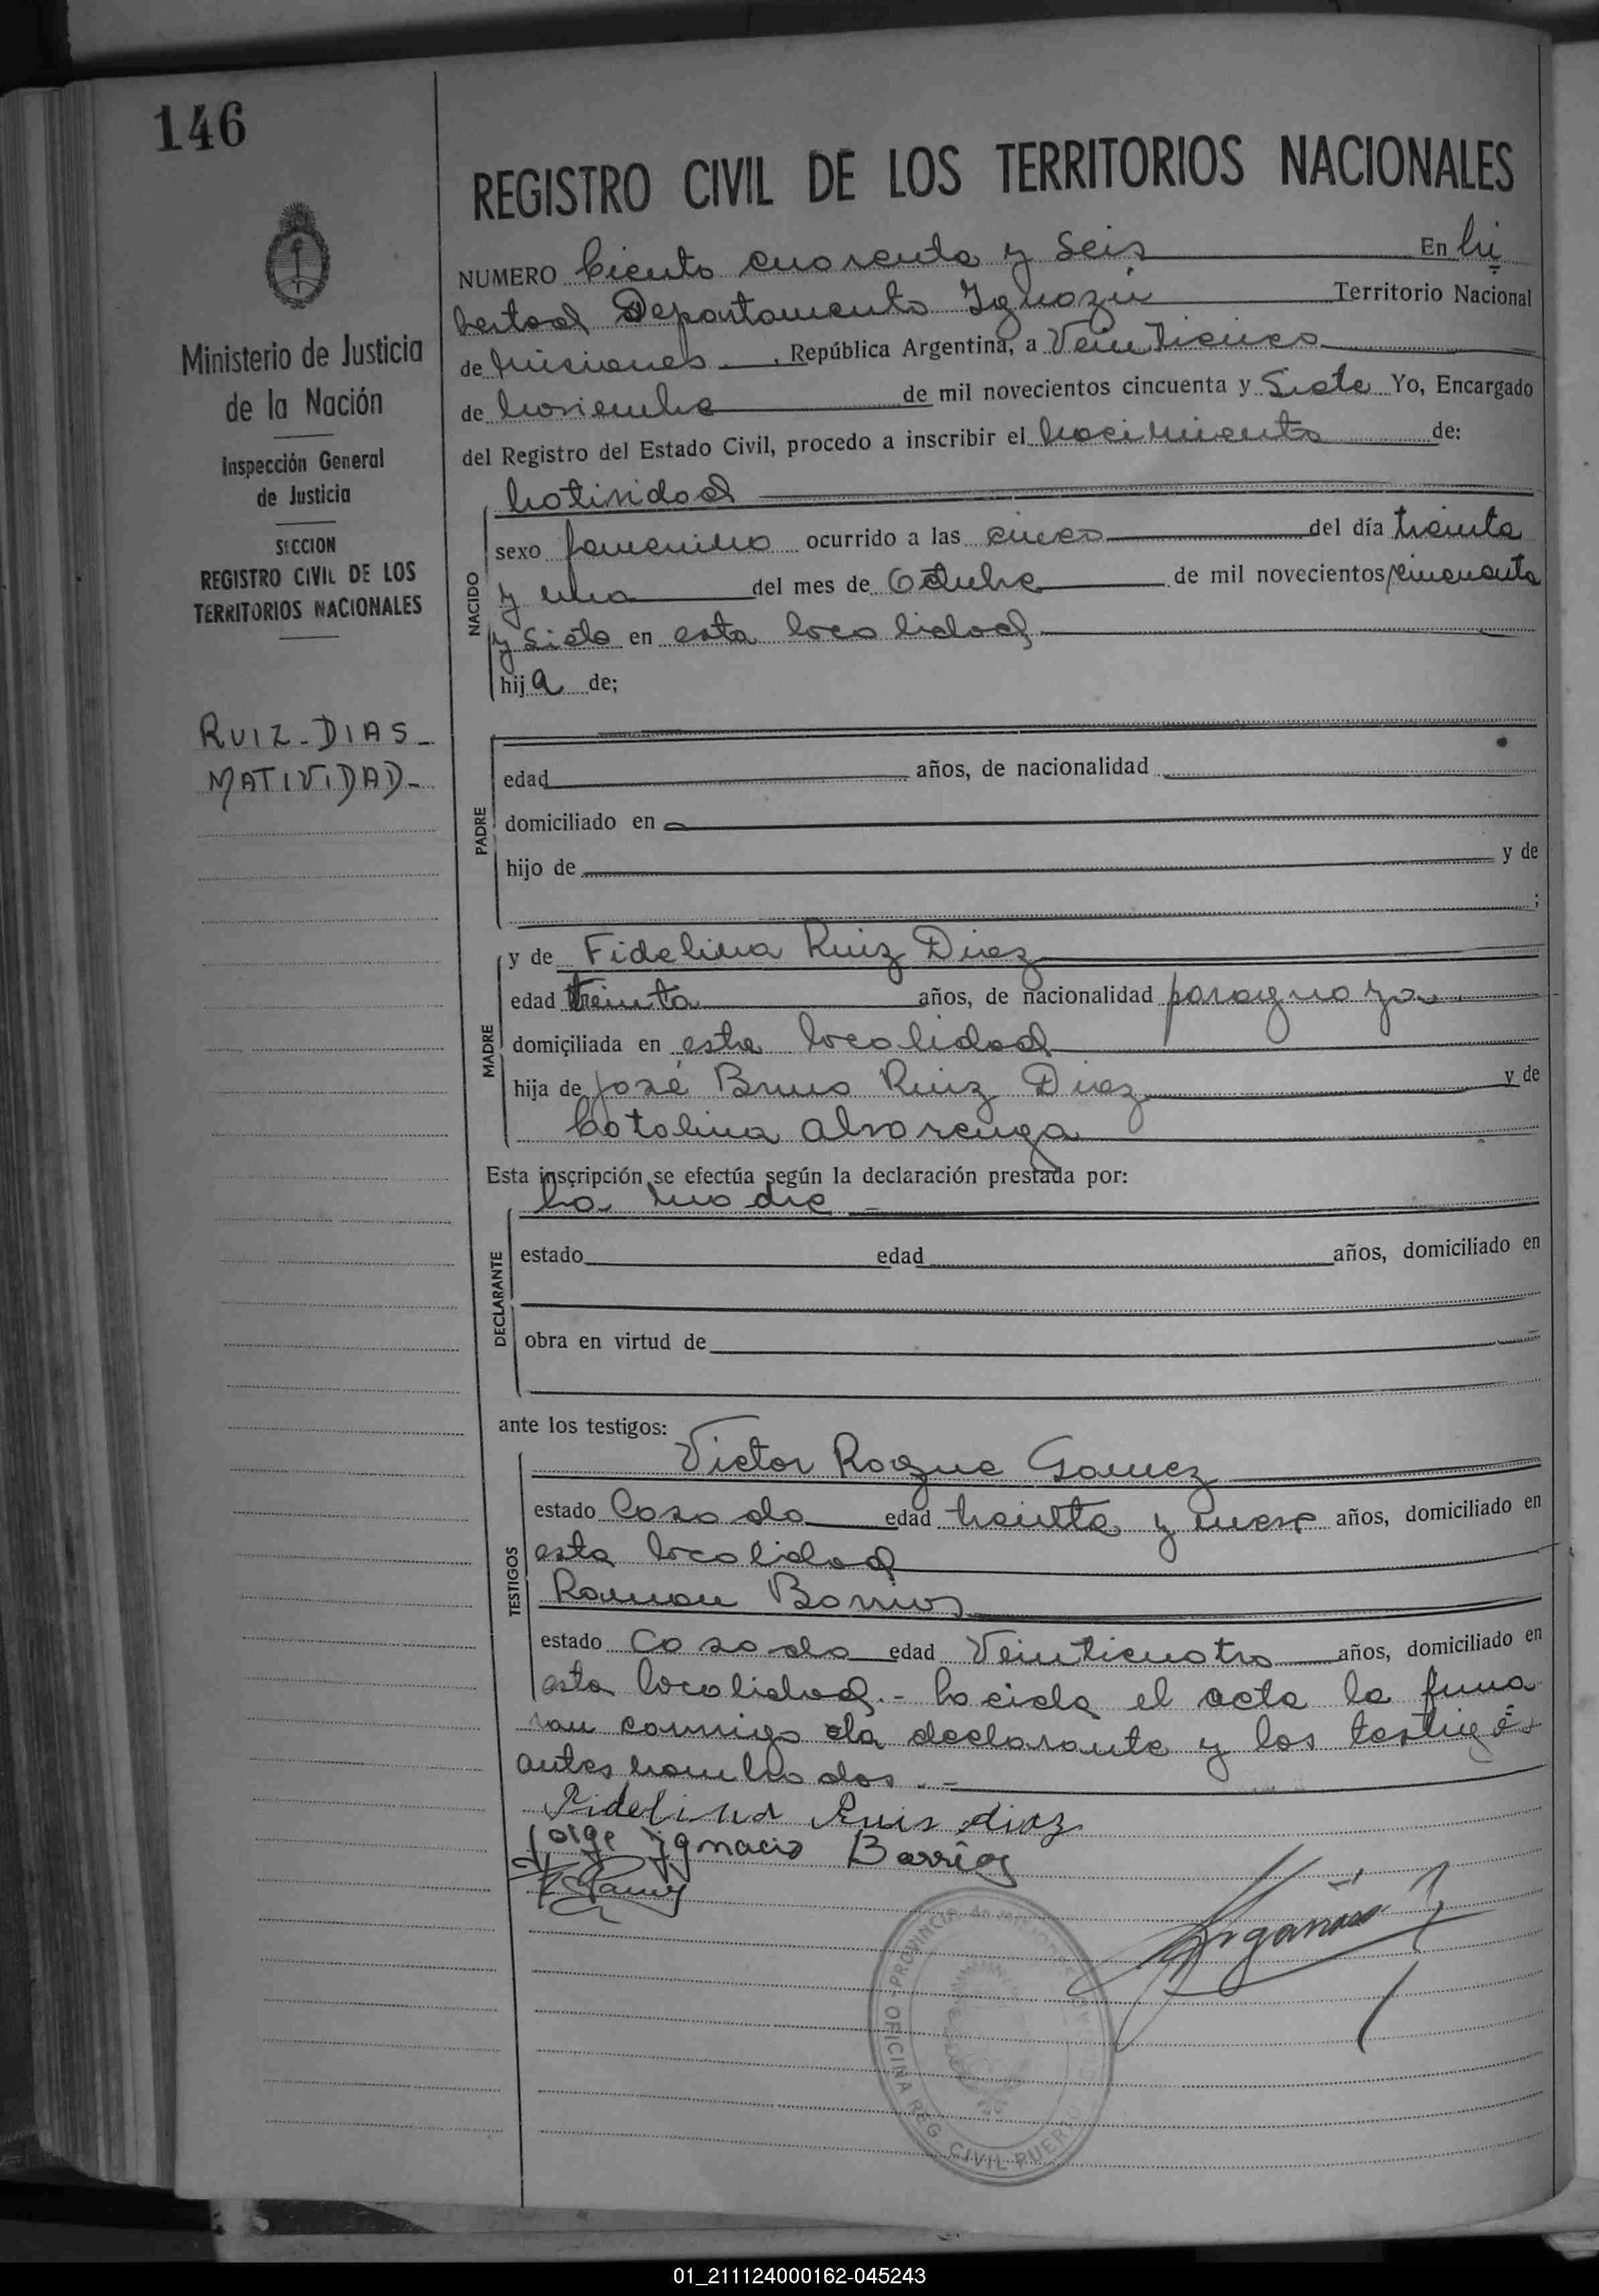 146
REGISTRO CIVIL DE LOS TERRITORIOS NACIONALES
NUMERO Ciento cuarenta y Seis En Li
bertad Departamento Iguazú Territorio Nacional
de Misiones, República Argentina, a Veinticinco
de Noviembre de mil novecientos cincuenta y Siete Yo, Encargado
del Registro del Estado Civil, procedo a inscribir el Nacimiento de:
Ministerio de Justicia
de la Nación
Inspección General
de Justicia
SECCION
REGISTRO CIVIL DE LOS
TERRITORIOS NACIONALES
RUIZ-DIAS-
NATIVIDAD-
NACIDO
Natividad
sexo femenino ocurrido a las cinco del día treinta
y uno del mes de Octubre de mil novecientos cincuenta
y Siete en esta localidad
hija de;
PADRE
edad años, de nacionalidad
domiciliado en
hijo de y de
;
MADRE
y de Fidelina Ruiz Diaz
edad treinta años, de nacionalidad paraguaya
domiciliada en esta localidad
hija de José Bruno Ruiz Diaz y de
Catalina Alvarenga
Esta inscripción se efectúa según la declaración prestada por:
La madre
DECLARANTE
estado edad años, domiciliado en
obra en virtud de
ante los testigos:
TESTIGOS
Victor Roque Gomez
estado Casado edad treinta y nueve años, domiciliado en
esta localidad
Ramon Barrios
estado Casado edad Veinticuatro años, domiciliado en
esta localidad.- Leida el acta la firma
ran conmigo la declarante y los testigos
antes nombrados.-
Fidelina Ruis diaz
Jorge Ygnacio Barrios
PROVINCIA de MISIONES
OFICINA REG. CIVIL PUERTO
01_211124000162-045243